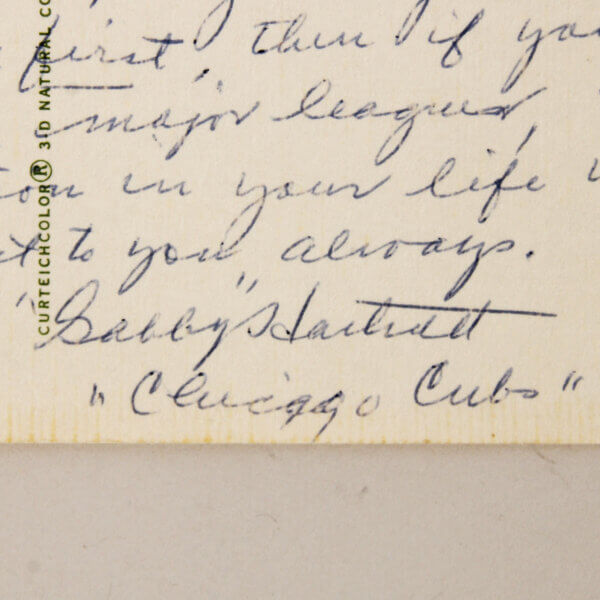 first, then if you
major leagues,
in your life
to you always.
"Gabby" Hartnett
"Chicago Cubs"
CURTEICHCOLOR® 3 D NATURAL CO